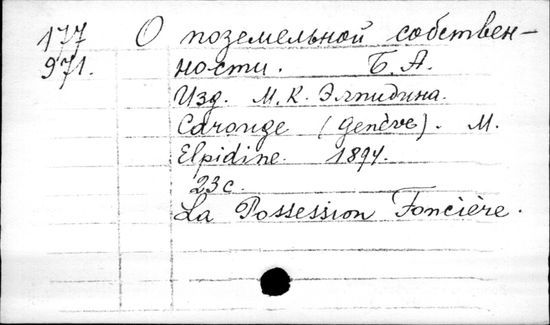 177 О поземельной собствен-
971. ности. Б. А.
Изд. М. К. Элпидина.
Carouge (Genève). M.
Elpidine. 1894.
23 с.
La Possession Foncière.